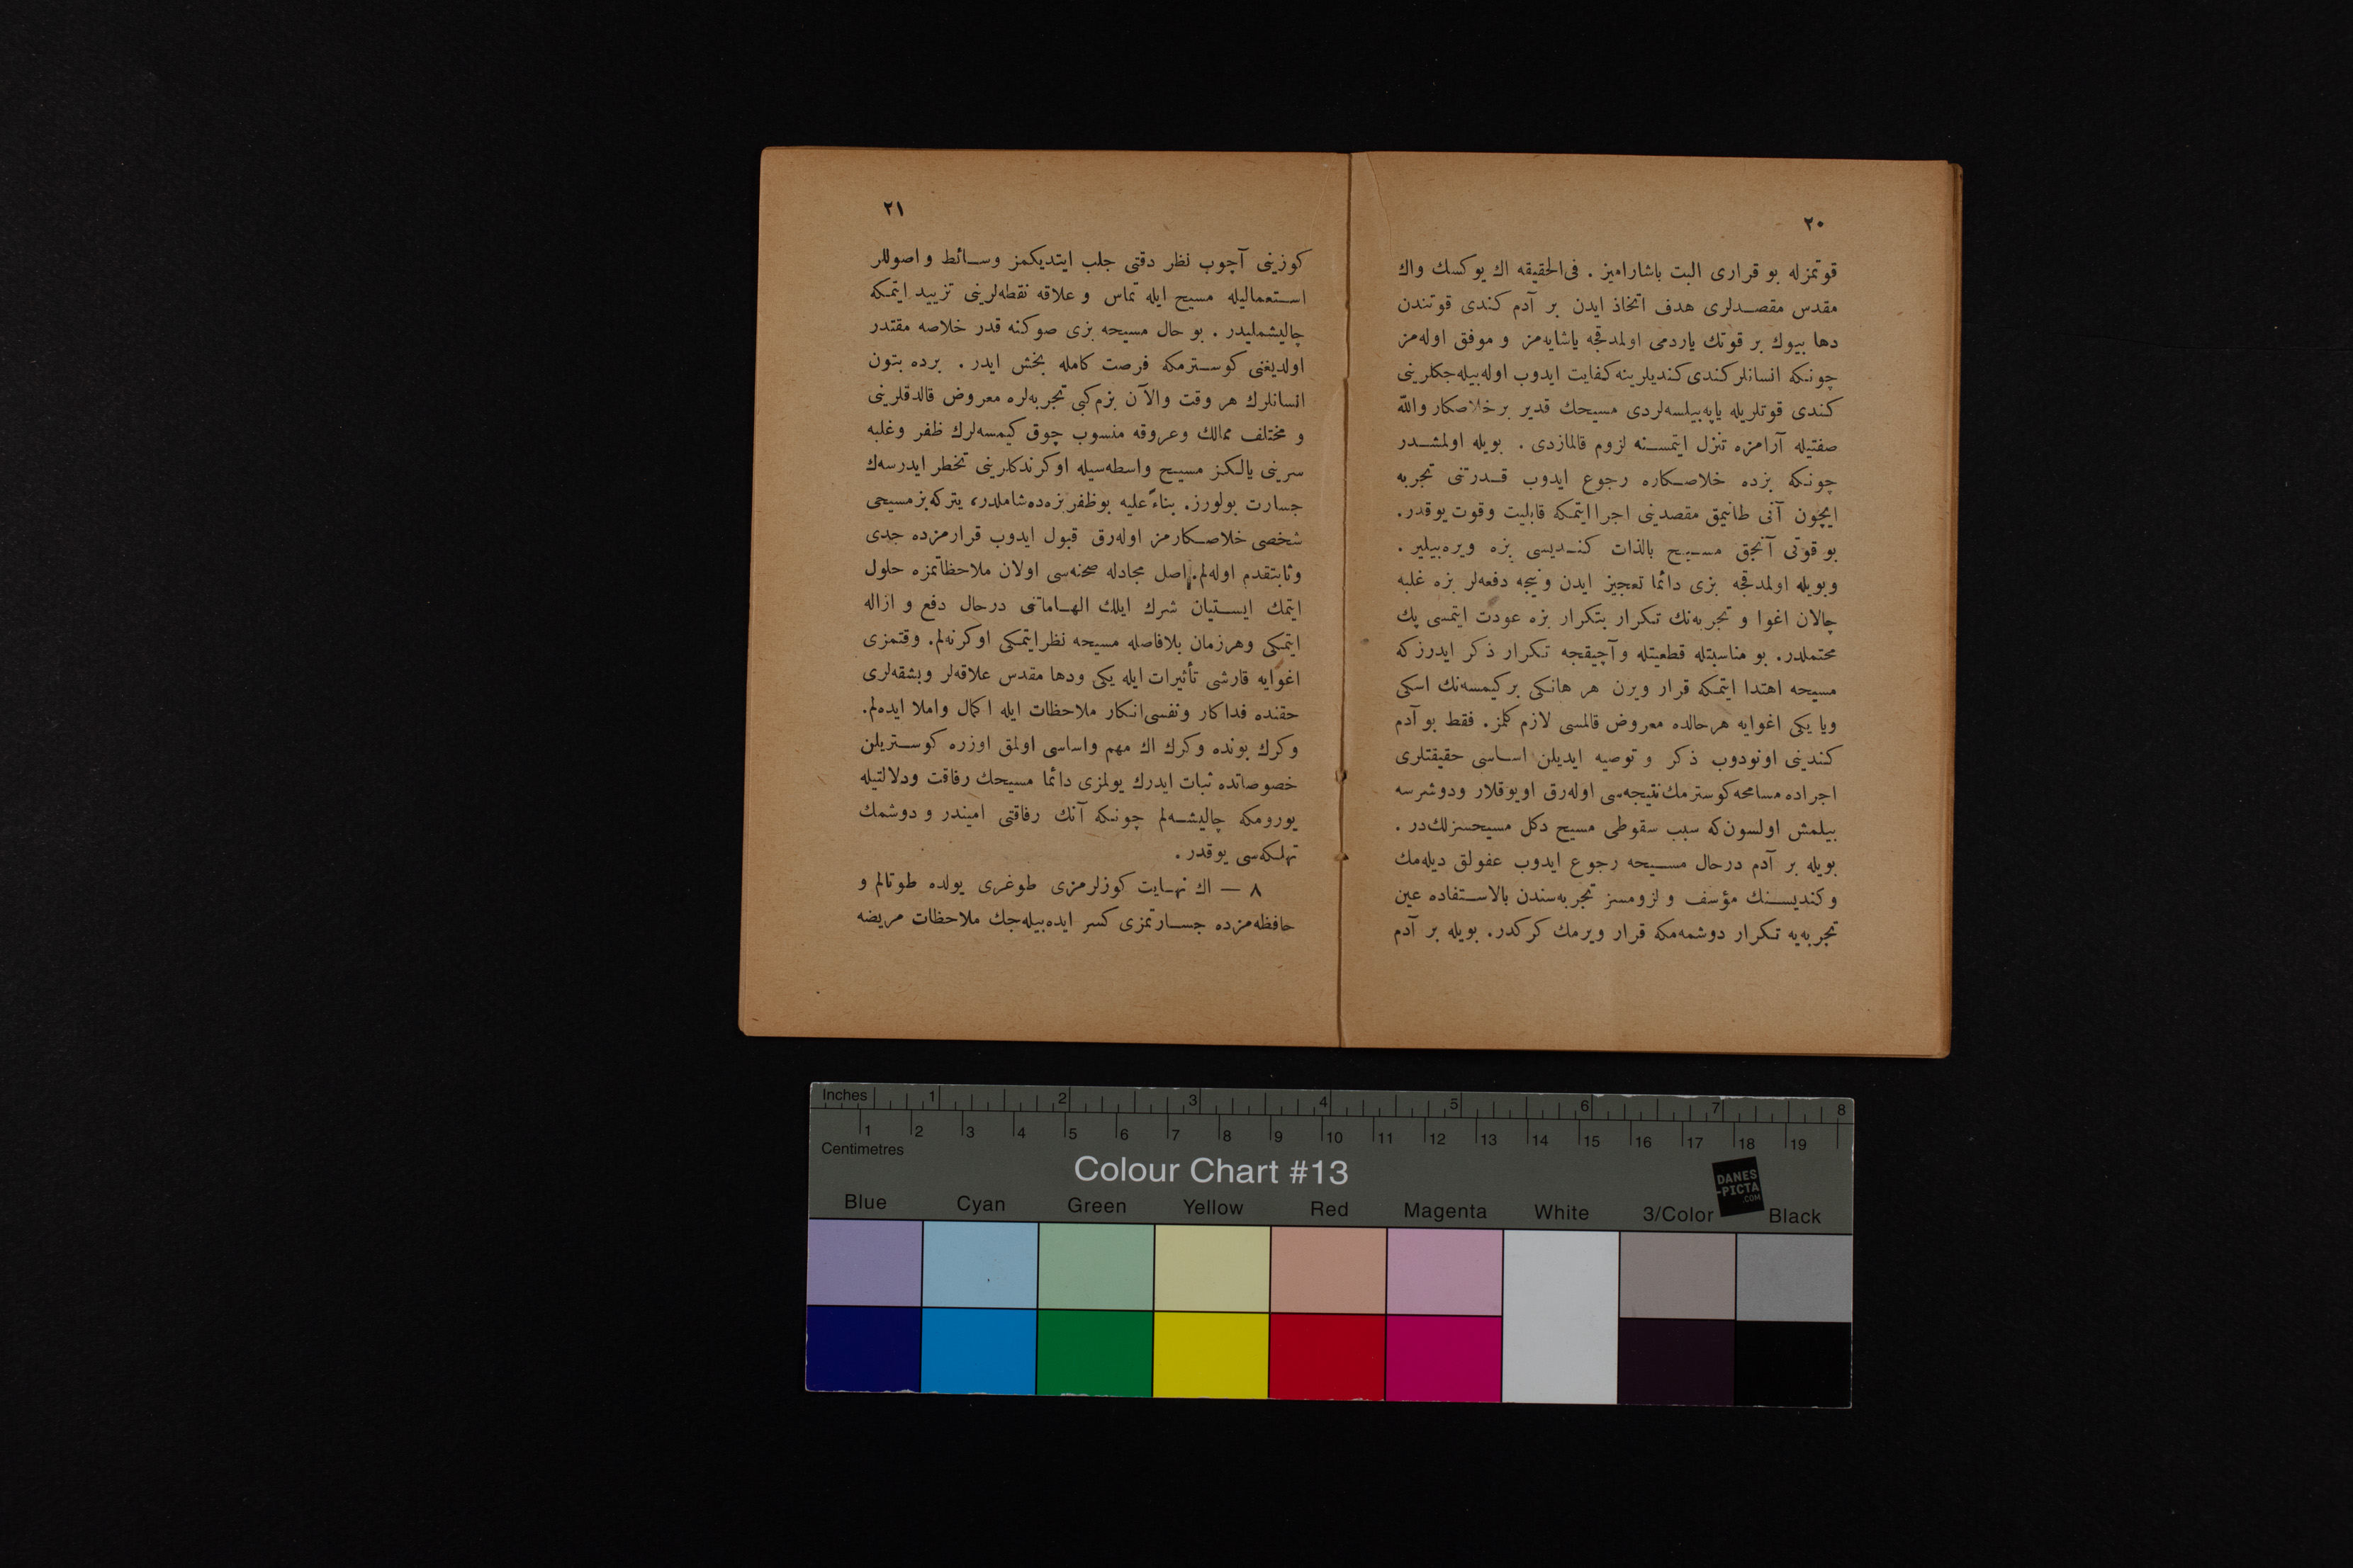 ٢٠
قوتمزله بو قراری البت باشارامیز . فی‌الحقیقه اك یوكسك واك
مقدس مقصـدلری هدف اتخاذ ایدن بر آدم كندی قوتندن
دها بیوك بر قوتك یاردمی اولمدقجه یاشایه‌مز و موفق اوله‌مز
چونكه انسانلر كندی كندیلرینه كفایت ایدوب اوله‌بیله‌جكلرینی
كندی قوتلریله یاپه‌بیلسه‌لردی مسیحك قدیر بر خلاصكار والله
صفتیله آرامزه تنزل ایتمسـنه لزوم قالمازدی . بویله اولمشـدر
چونكه بزده خلاصـكاره رجوع ایدوب قـدرتنی تجربه
ایچون آنی طانیمق مقصدینی اجرا ایتمكه قابلیت وقوت یوقدر.
بو قوتی آنجق مسـیح بالذات كنـدیسی بزه ویره‌بیلیر .
وبویله اولمدقجه بزی دائما تعجیز ایدن ونیجه دفعه‌لر بزه غلبه
چالان اغوا و تجربه‌نك تكرار بتكرار بزه عودت ایتمسی پك
محتملدر. بو مناسبتله قطعیتله وآچیقجه تكرار ذكر ایدرزكه
مسیحه اهتدا ایتمكه قرار ویرن هر هانكی بر كیمسه‌نك اسكی
ویا یكی اغوایه هرحالده معروض قالمسی لازم كلمز. فقط بو آدم
كندینی اونودوب ذكر و توصیه ایدیلن اسـاسی حقیقتلری
اجراده مسامحه كوسترمك نتیجه‌سی اوله‌رق اویوقلار ودوشرسه
بیلمش اولسون‌كه سبب سقوطی مسیح دكل مسیحسزلك‌در .
بویله بر آدم درحال مسـیحه رجوع ایدوب عفولق دیله‌مك
وكندیسـنك مؤسف و لزومسز تجربه‌سندن بالاسـتفاده عین
تجربه‌یه تكرار دوشمه‌مكه قرار ویرمك كركدر. بویله بر آدم
٢١
كوزینی آچوب نظر دقتی جلب ایتدیكمز وسـائط و اصوللر
اسـتعمالیله مسیح ایله تماس و علاقه نقطه‌لرینی تزیید ایتمكه
چالیشملیدر . بو حال مسیحه بزی صوكنه قدر خلاصه مقتدر
اولدیغنی كوسـترمكه فرصت كامله بخش ایدر . برده بتون
انسانلرك هر وقت والآن بزم كبی تجربه‌لره معروض قالدقلرینی
و مختلف ممالك وعروقه منسوب چوق كیمسه‌لرك ظفر وغلبه
سرینی یالكز مسیح واسطه‌سیله اوكرندكلرینی تخطر ایدرسه‌ك
جسارت بولورز. بناءً علیه بوظفر بزه‌ده شاملدر، یتركه بز مسیحی
شخصی خلاصـكارمز اوله‌رق قبول ایدوب قرارمزده جدی
وثابتقدم اوله‌لم. اصل مجادله صحنه‌سی اولان ملاحظاتمزه حلول
ایتمك ایسـتیان شرك ایلك الهـاماتنی درحال دفع و ازاله
ایتمكی وهرزمان بلافاصله مسیحه نظر ایتمكی اوكرنه‌لم. وقتمزی
اغوایه قارشی تأثیرات ایله یكی ودها مقدس علاقه‌لر وبشقه‌لری
حقنده فداكار ونفسی‌انكار ملاحظات ایله اكمال واملا ایده‌لم.
وكرك بونده وكرك اك مهم واساسی اولمق اوزره كوسـتریلن
خصوصاتده ثبات ایدرك یولمزی دائما مسیحك رفاقت ودلالتیله
یورومكه چالیشـه‌لم چونكه آنك رفاقتی امیندر و دوشمك
تهلكه‌سی یوقدر .
٨ — اك نهـایت كوزلرمزی طوغری یولده طوتالم و
حافظه‌مزده جسـارتمزی كسر ایده‌بیله‌جك ملاحظات مریضه
Inches 1 2 3 4 5 6 7 8
1 2 3 4 5 6 7 8 9 10 11 12 13 14 15 16 17 18 19
Centimetres
Colour Chart #13
DANES
-PICTA
.COM
Blue Cyan Green Yellow Red Magenta White 3/Color Black